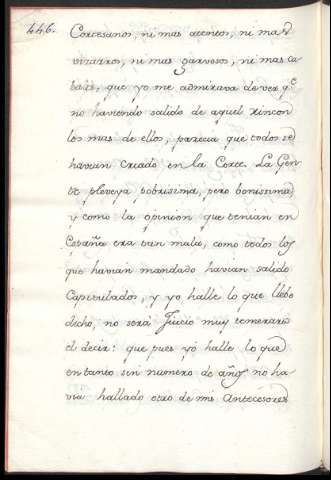 446. Cortesanos, ni mas atentos, ni mas
vizarros, ni mas garvosos, ni mas ca
bales, que yo me admirava de ver qe
no haviendo salido de aquel rincon
los mas de ellos, parecia que todos se
havian criado en la Corte. La Gen
te pleveya pobrisima, pero bonisima
y como la opinion que tenian en
España era tan mala, como todos los
que havian mandado havian salido
Capitulados, y yo halle lo que llebo
dicho, no será Juicio muy temerario
el decir: que pues yó halle lo que
en tanto sin numero de años no ha
via hallado otro de mis Antecesores